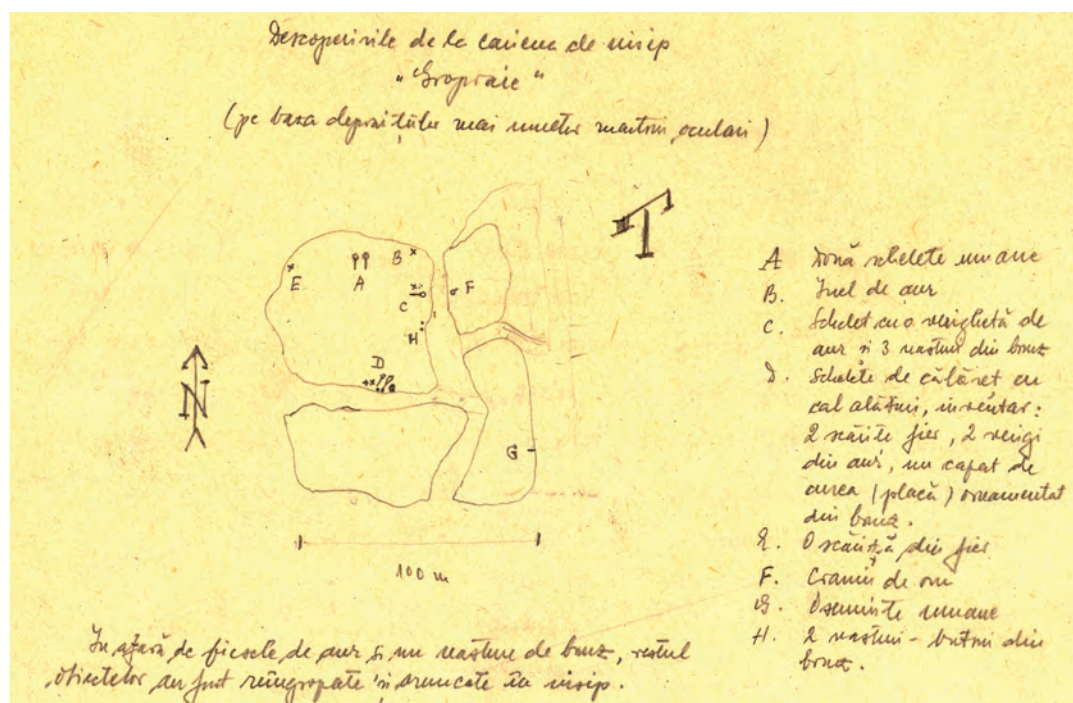 Descoperirile de la cariera de nisip
"Gropoaie"
(pe baza depozițiilor mai multor martori oculari)
E
A
B
C
F
H
D
G
N
100 m
A Două schelete umane
B. Inel de aur
C. Schelet cu o verighetă de
aur și 3 nasturi din bronz
D. Schelete de călăreț cu
cal alături, inventar:
2 scărițe fier, 2 verigi
din aur, un capăt de
curea (placă) ornamentat
din bronz.
E. O scăriță din fier
F. Craniu de om
G. Oseminte umane
H. 2 nasturi - butoni din
bronz.
În afară de piesele de aur și un nasture de bronz, restul
obiectelor au fost reîngropate și aruncate în nisip.